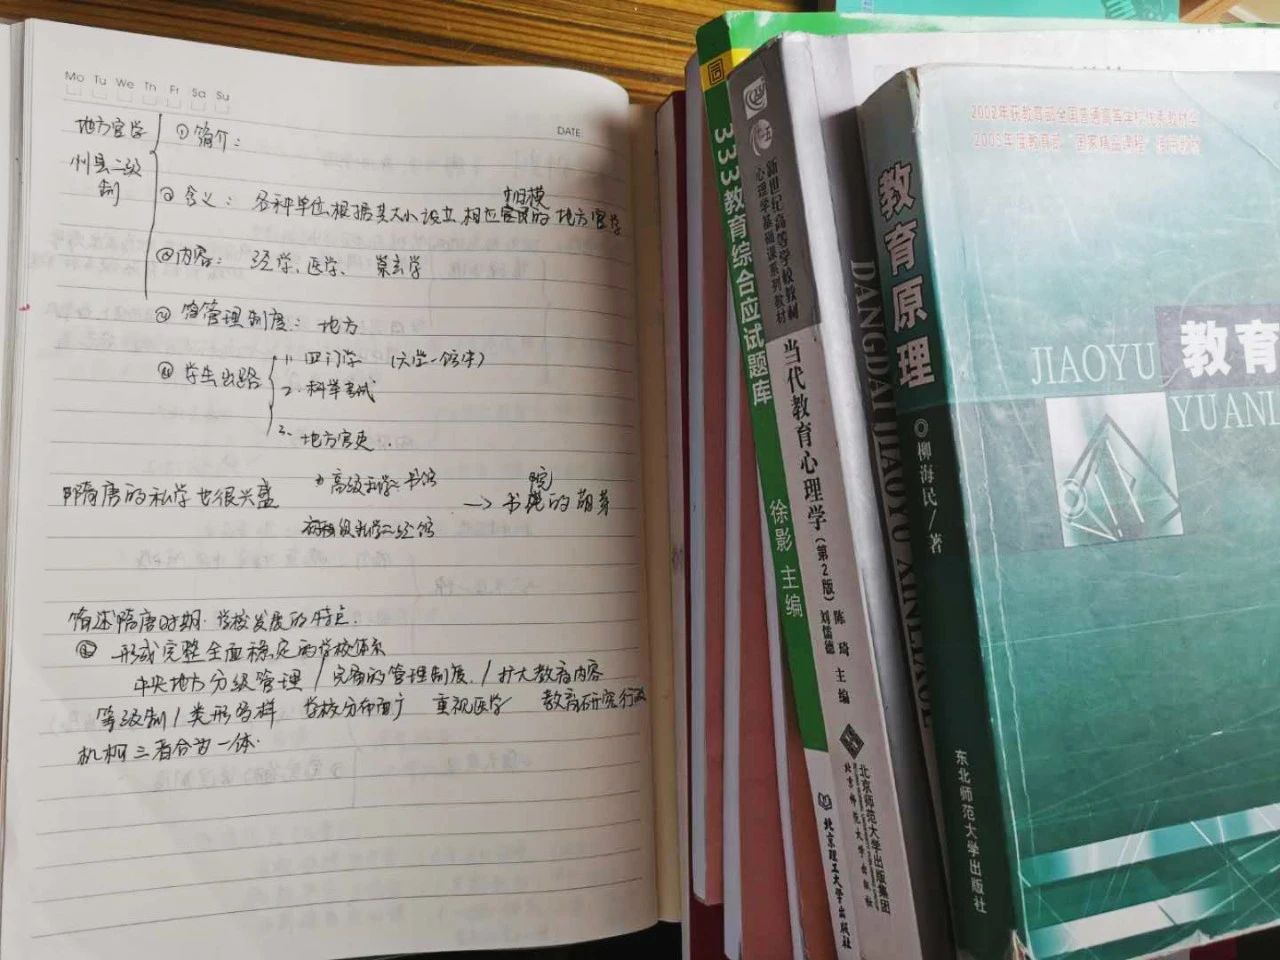 Mo Tu We Th Fr Sa Su
DATE
地方官学
州县二级
制
①简介：
②含义：各种单位根据其大小设立相应 规模的地方官学
③内容：经学、医学、崇玄学
管理制度：地方
学生出路
1. 四门学
2. 科举考试
3. 地方官吏.
隋唐的私学也很兴盛
高级私学：书馆
→书院的萌芽
初级私学：经馆
简述隋唐时期学校发展的特点.
① 形成完整全面稳定的学校体系
中央地方分级管理 / 完备的管理制度. / 扩大教育内容
等级制 / 类形多样 学校分布面广 重视医学 教育研究行政
机构三者合为一体.
333教育综合应试题库
徐影 主编
北京理工大学出版社
新世纪高等学校教材
心理学基础课系列教材
当代教育心理学(第2版)
陈琦 刘儒德 主编
北京师范大学出版集团
北京师范大学出版社
DANGDAI JIAOYU XINLIXUE
教育原理
柳海民/著
东北师范大学出版社
2002年获教育部全国普通高等学校优秀教材
2005年度教育部“国家精品课程”
JIAOYU 教育
YUANL